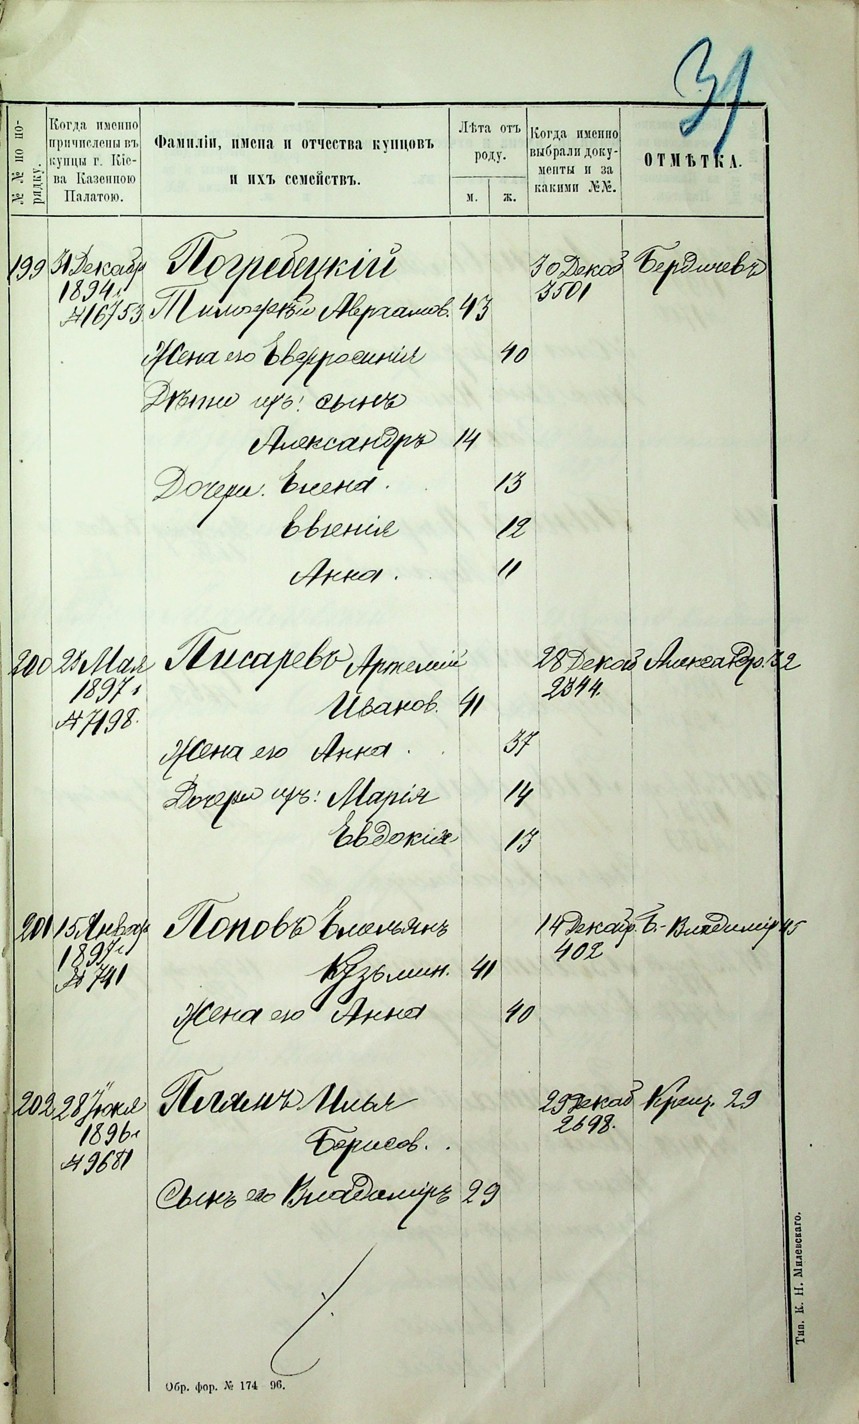 31
№ № по по-
рядку.
Когда именно
причислены въ
купцы г. Кіе-
ва Казенною
Палатою.
Фамиліи, имена и отчества купцовъ
и ихъ семействъ.
Лѣта отъ
роду.
м.
ж.
Когда именно
выбрали доку-
менты и за
какими №№.
ОТМѢТКА.
199 31 Декабр Погребецкій 30 Декаб Бердичевъ
1894 г 3501
№ 16753 Тимофѣй Авраамов. 43
Жена его Евфросинія 40
Дѣти ихъ: сынъ
Александръ 14
Дочери. Елена. 13
Евгенія 12
Анна. 11
200 28 Мая Писаревъ Артемій 28 Декаб Александр. 32
1897 г Иванов. 41 2344.
№ 7198.
Жена его Анна 37
Дочери ихъ: Марія 14
Евдокія 13
201 15 Январ Поповъ Емельянъ 14 Декабр. Б.-Владимір 45
1897 г Кузьмин. 41 402
№ 741
Жена его Анна 40
202 28 Іюня Плямъ Илья 29 Декаб Крещ. 29
1896 г Борисов. 2698.
№ 9681
Сынъ его Владиміръ 29
Обр. фор. № 174—96.
Тип. К. Н. Милевскаго.